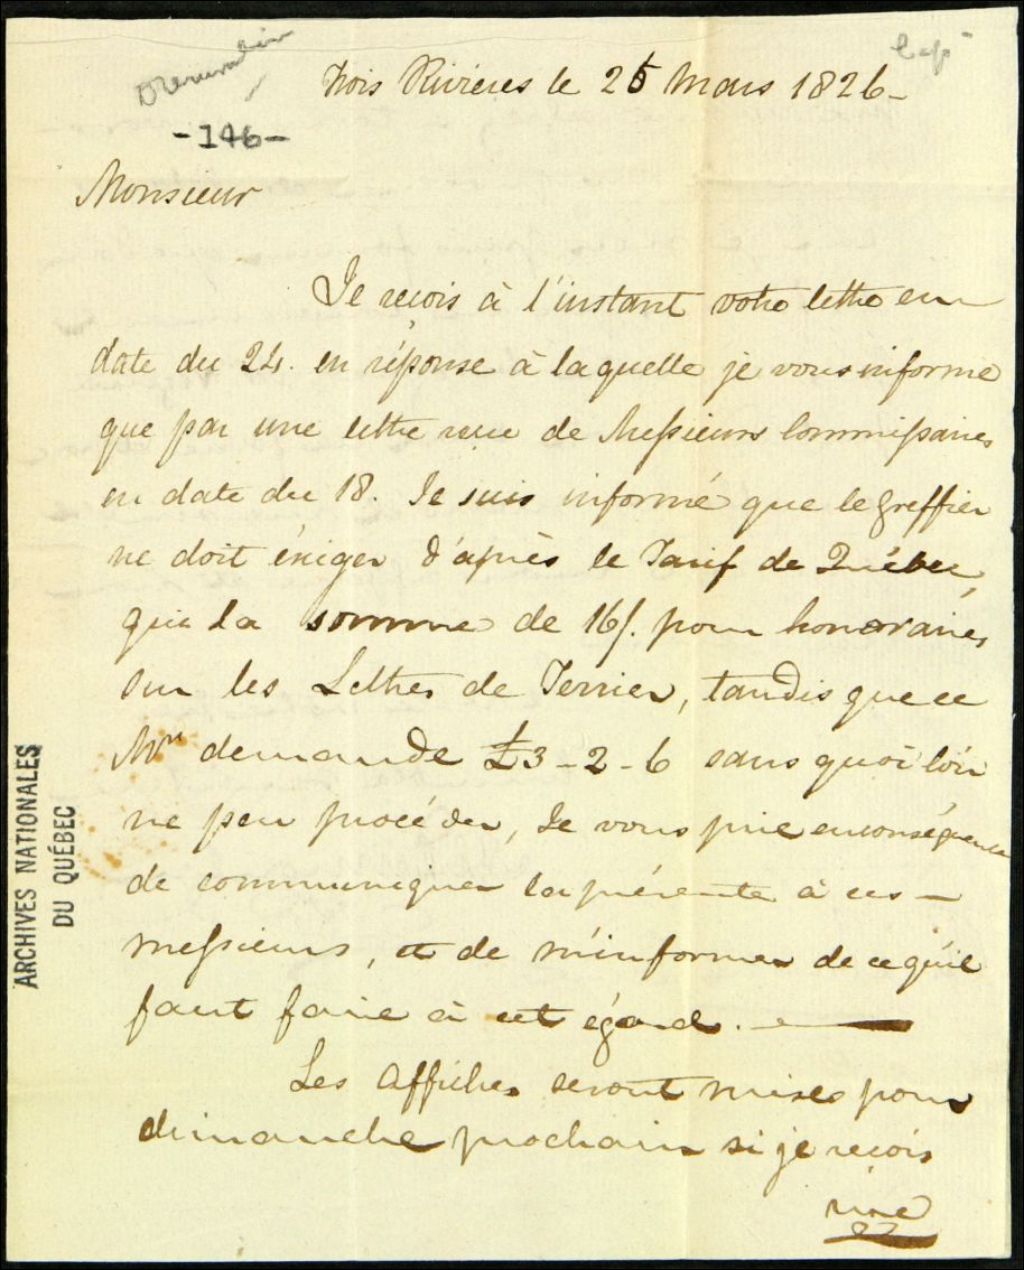 Trois Rivieres le 25 Mars 1826 -
-146-
Monsieur
Je recois à l'instant votre lettre en
date du 24. en réponse à laquelle je vous informe
que par une lettre recue de Messieurs Commissaires
en date du 18. Je suis informé que le Greffier
ne doit éxiger d'après le Tarif de Québec,
que la somme de 16/. pour honoraires
sur les Lettres de Terrier, tandis que ce
Mr demande £3-2-6 sans quoi l'on
ne peu procéder, Je vous prie enconséquence
de communiquer la présente à ces -
messieurs, et de m'informer de ce qu'il
faut faire à cet égard.
Les affiches seront mises pour
dimanche prochain si je recois
une
ARCHIVES NATIONALES
DU QUÉBEC